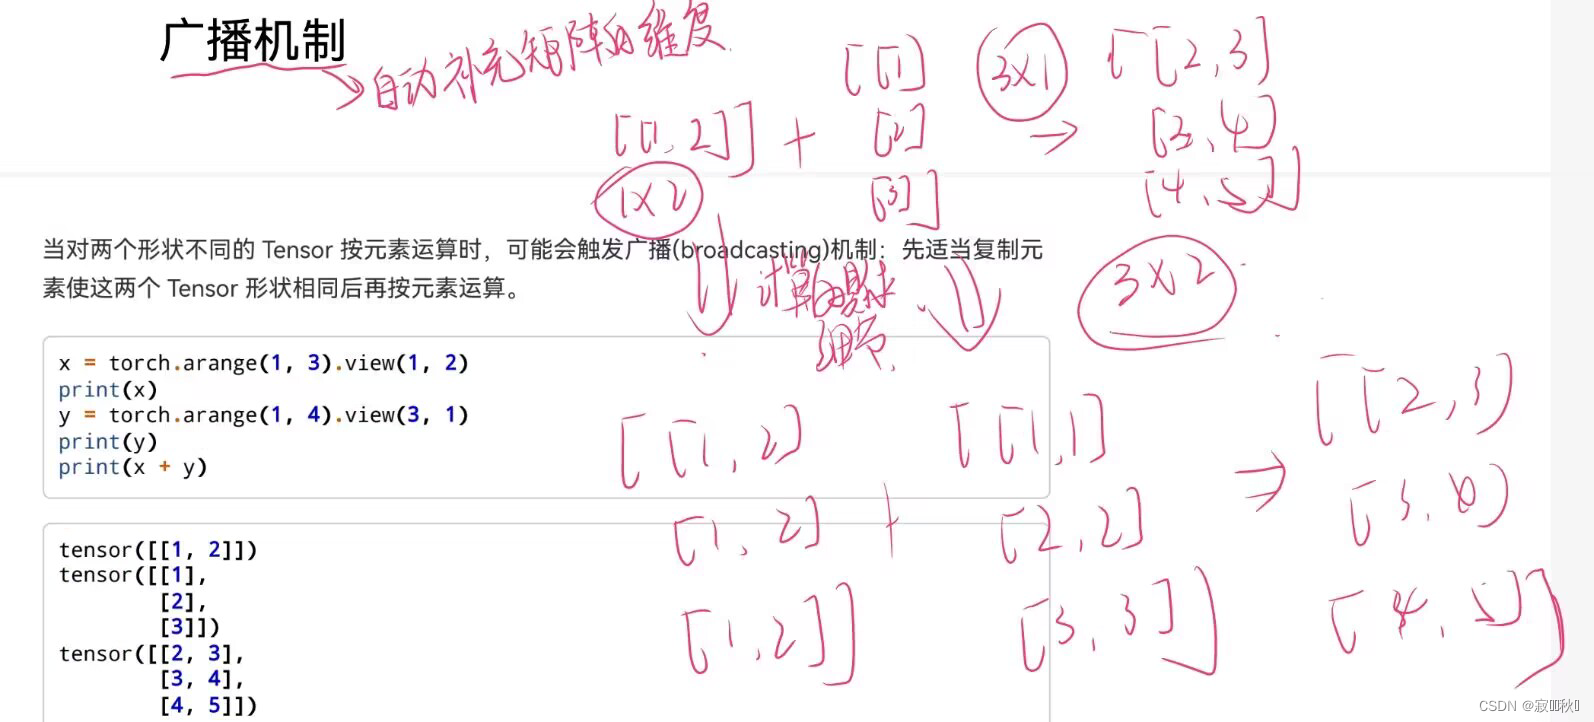 广播机制
自动补充矩阵的维度
[[1, 2]] + [[1] 3X1 → [[2,3]
[2] [3,4]
1X2 [3]] [4,5]]
3X2
当对两个形状不同的 Tensor 按元素运算时，可能会触发广播(broadcasting)机制：先适当复制元
素使这两个 Tensor 形状相同后再按元素运算。
计算的具体
细节
x = torch.arange(1, 3).view(1, 2)
print(x)
y = torch.arange(1, 4).view(3, 1)
print(y)
print(x + y)
[[1, 2] [[1,1] [[2,3]
[1, 2] + [2,2] ⇒ [3,4]
[1,2]] [3,3]] [4,5]]
tensor([[1, 2]])
tensor([[1],
[2],
[3]])
tensor([[2, 3],
[3, 4],
[4, 5]])
CSDN @寂秋